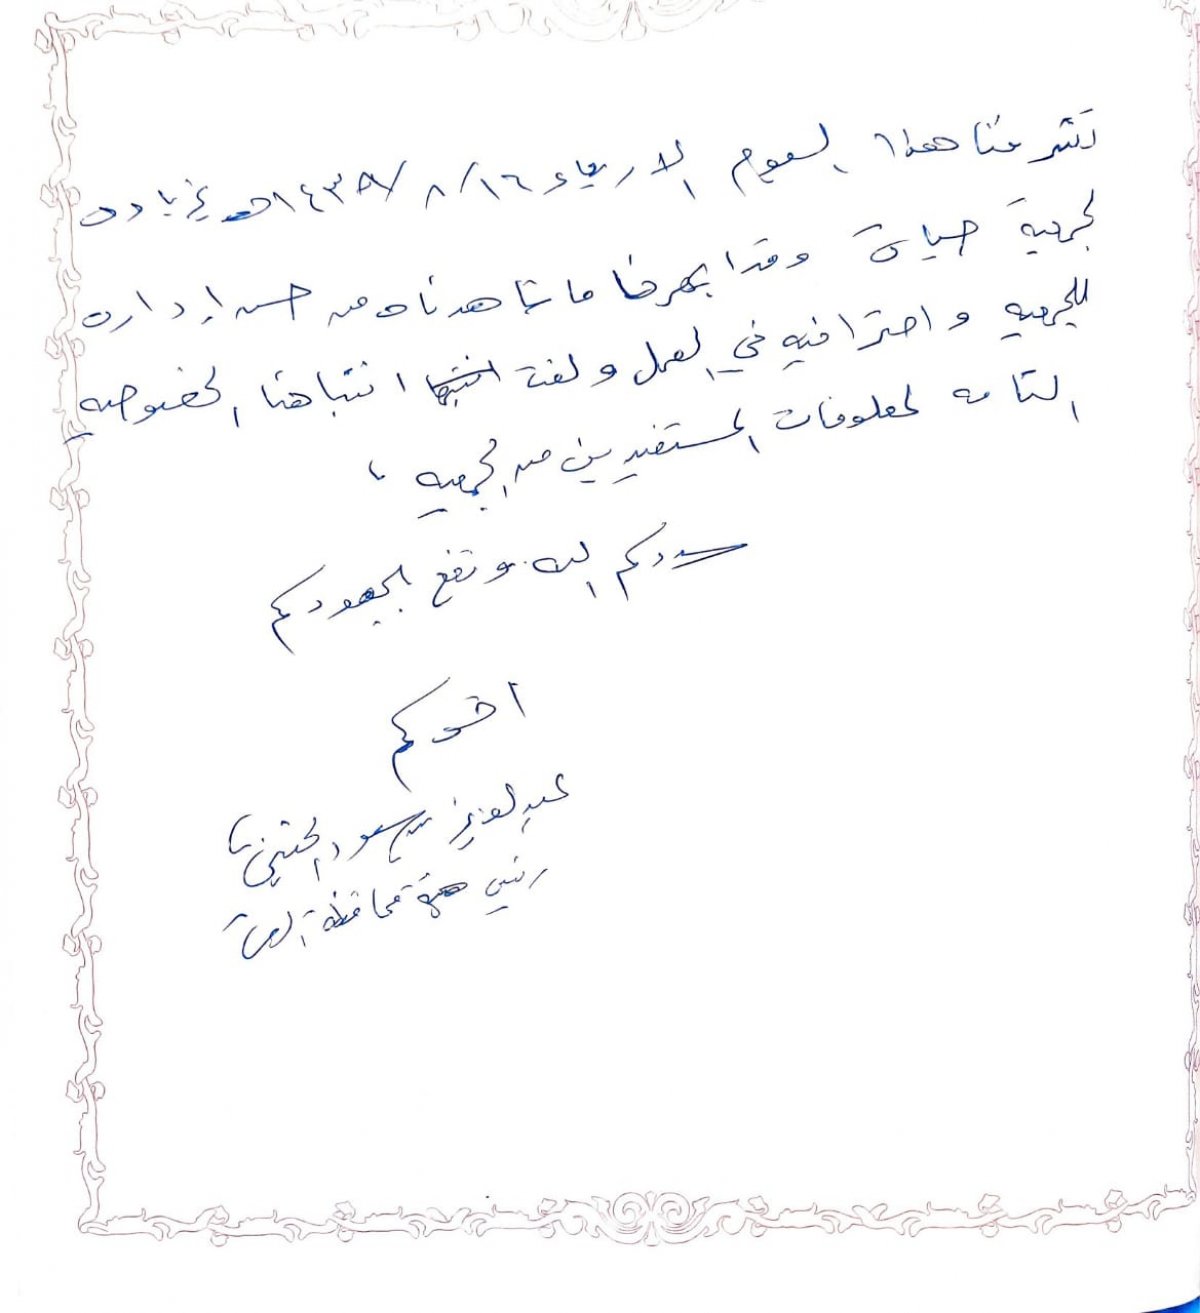 تشرفنا هذا اليوم الاربعاء ١٤٣٨/٨/١٦هـ في زيارة
لجمعية حياة وقد ابهرنا ما شاهدناه من حسن إدارة
للجمعيه واحترافيه في العمل ولفت انتباهنا الخصوصيه
التامه لمعلومات المستفيدين من الجمعيه
سددكم الله ونفع بجهودكم
اخوكم
عبدالعزيز سعود
رئيس هيئة محافظة